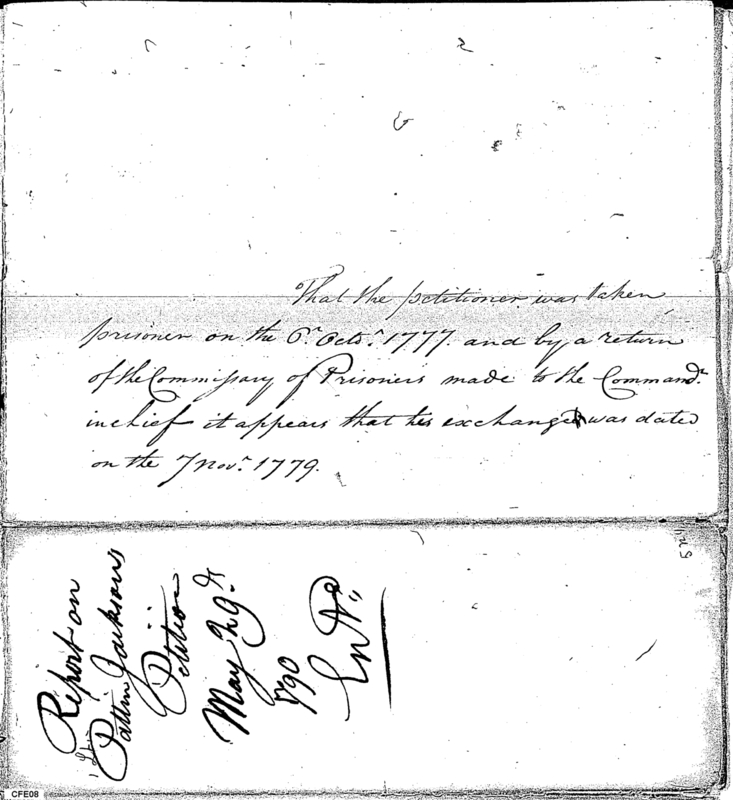 That the petitioner was taken
prisoner on the 6r. Octor. 1777. and by a return
of the Commissary of Prisoners made to the Commandr.
in chief it appears that his exchange was dated
on the 7 Novr. 1779.
Report on
Pattin Jacksons
Petition
May 29d
1790
CFE08